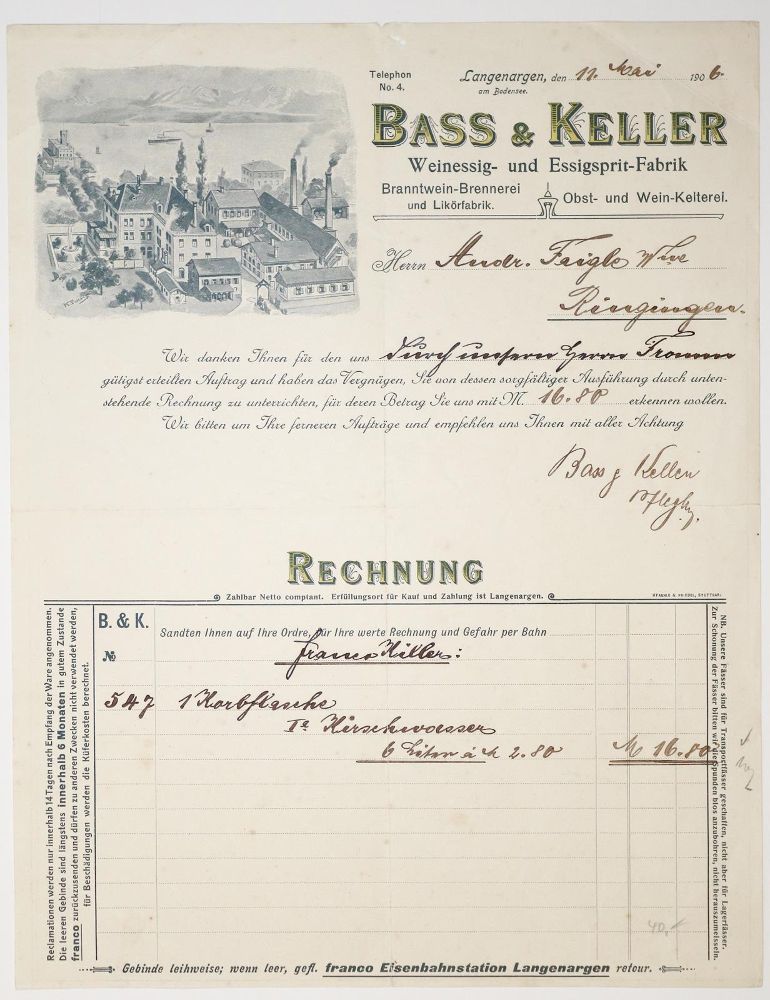 Telephon
No. 4.
Langenargen, den 11. Mai 1906.
am Bodensee.
BASS & KELLER
Weinessig- und Essigsprit-Fabrik
Branntwein-Brennerei
und Likörfabrik.
Obst- und Wein-Kelterei.
Herrn Andr. Faigle Wwe
Ringingen.
Wir danken Ihnen für den uns durch unsern Herrn Fromm
gütigst erteilten Auftrag und haben das Vergnügen, Sie von dessen sorgfältiger Ausführung durch unten-
stehende Rechnung zu unterrichten, für deren Betrag Sie uns mit M. 16.80 erkennen wollen.
Wir bitten um Ihre ferneren Aufträge und empfehlen uns Ihnen mit aller Achtung
Bass & Keller
RECHNUNG
Zahlbar Netto comptant. Erfüllungsort für Kauf und Zahlung ist Langenargen.
B. & K.
Sandten Ihnen auf Ihre Ordre, für Ihre werte Rechnung und Gefahr per Bahn
№
franco Killer:
547 1 Korbflasche
Ia Kirschwasser
6 Liter à M 2.80 M 16.80
40,-
Reclamationen werden nur innerhalb 14 Tagen nach Empfang der Ware angenommen.
Die leeren Gebinde sind längstens innerhalb 6 Monaten in gutem Zustande
franco zurückzusenden und dürfen zu anderen Zwecken nicht verwendet werden,
für Beschädigungen werden die Küferkosten berechnet.
NB. Unsere Fässer sind für Transportfässer geschaffen, nicht aber für Lagerfässer.
Zur Schonung der Fässer bitten wir die Spunden blos anzubohren, nicht herauszumeisseln.
Gebinde leihweise; wenn leer, gefl. franco Eisenbahnstation Langenargen retour.